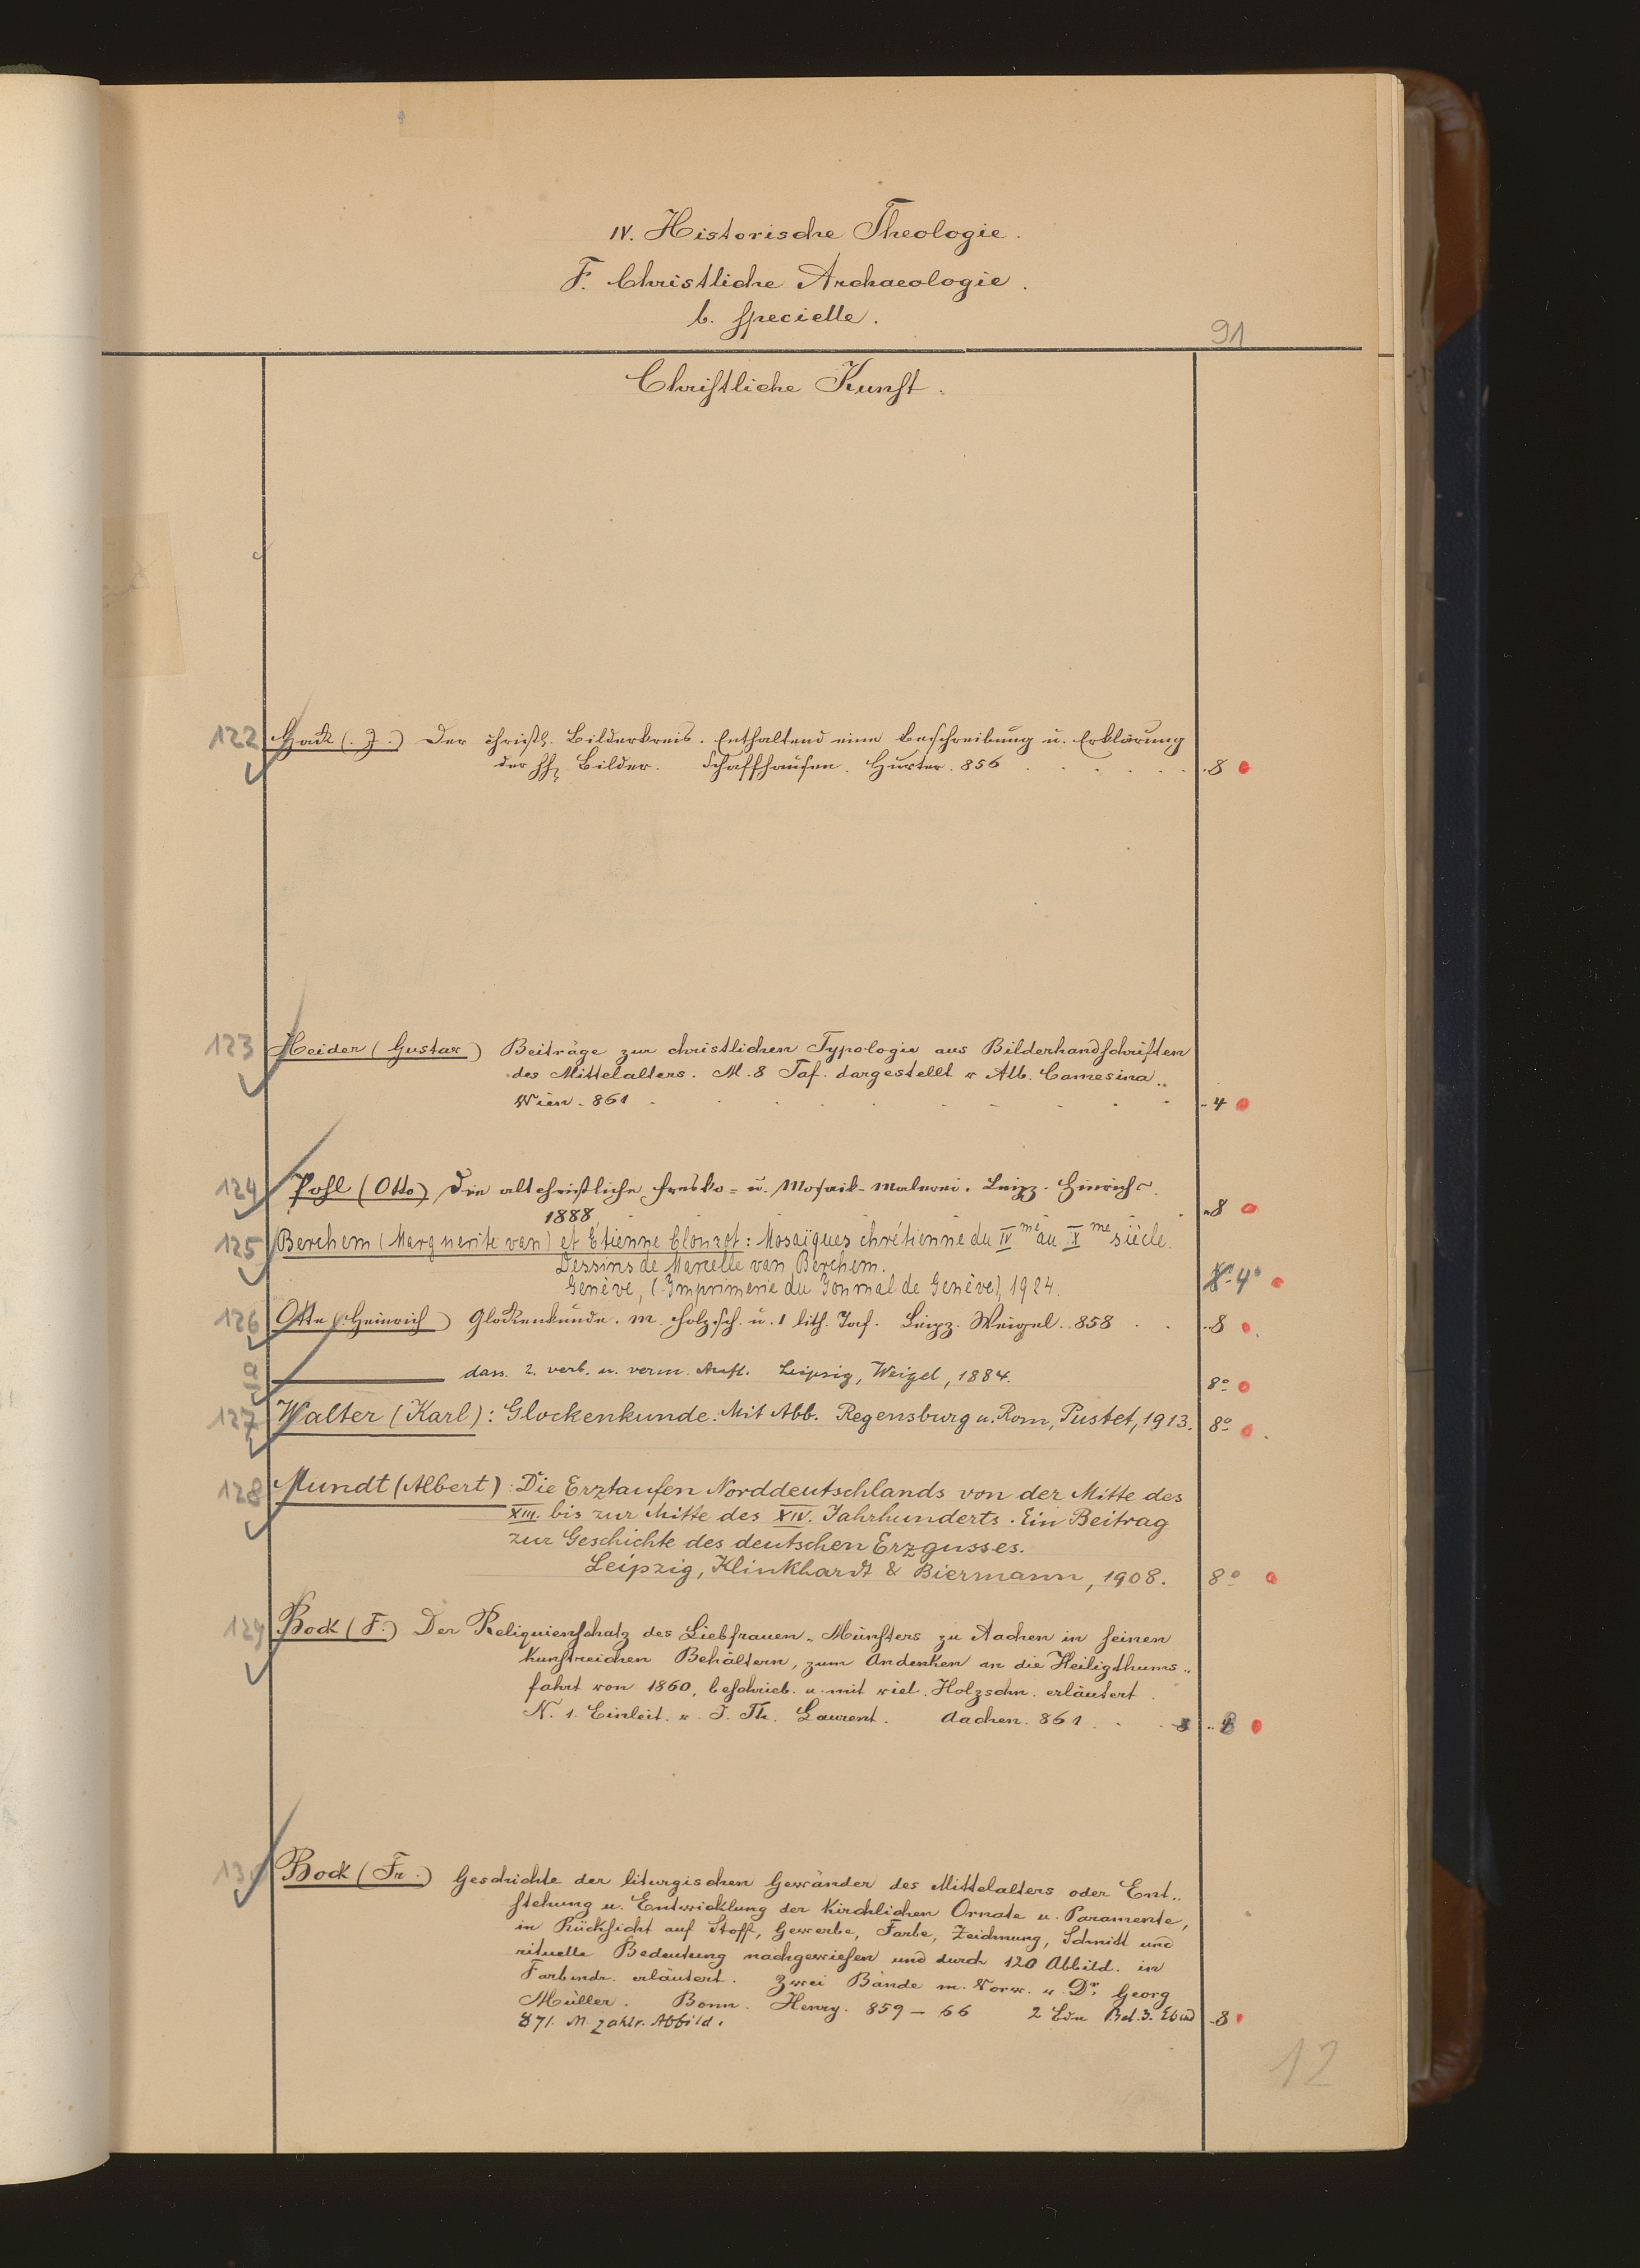 IV. Historische Theologie.
F. Christliche Archaeologie.
b. specielle.
91
Christliche Kunst.
122 Hack (J.) Der christl. Bilderkreis. Enthaltend eine Beschreibung u. Erklärung
der hh. Bilder. Schaffhausen. Hurter. 856 8
123 Heider (Gustav) Beiträge zur christlichen Typologie aus Bilderhandschriften
des Mittelalters. M. 8 Taf. dargestellt v Alb. Camesina..
Wien. 861 4
124 Pohl (Otto) Die altchristliche Fresko- u. Mosaik-Malerei. Leipz. Hinrichs.
1888 8
125 Berchem (Marguerite van) et Étienne Clouzot: Mosaïques chrétienne du IVme au Xme siècle.
Dessins de Marcelle van Berchem.
Genève, (Imprimerie du Journal de Genève), 1924. 4°
126 Otte (Heinrich) Glockenkunde. M. Holzsch. u. 1 lith. Taf. Leipz. Weigel. 858 8
a dass. 2. verb. u. verm. Aufl. Leipzig, Weigel, 1884. 8°
127 Walter (Karl): Glockenkunde. Mit Abb. Regensburg u. Rom, Pustet, 1913. 8°
128 Mundt (Albert): Die Erztaufen Norddeutschlands von der Mitte des
XIII. bis zur Mitte des XIV. Jahrhunderts. Ein Beitrag
zur Geschichte des deutschen Erzgusses.
Leipzig, Klinkhardt & Biermann, 1908. 8°
129 Bock (F.) Der Reliquienschatz des Liebfrauen-Münsters zu Aachen in seinen
kunstreichen Behältern, zum Andenken an die Heiligthums..
fahrt von 1860, beschrieb. u. mit viel. Holzschn. erläutert.
N. 1. Einleit. v. J. Th. Laurent. Aachen. 861 8
130 Bock (Fr.) Geschichte der liturgischen Gewänder des Mittelalters oder Ent..
stehung u. Entwicklung der Kirchlichen Ornate u. Paramente,
in Rücksicht auf Stoff, Gewerbe, Farbe, Zeichnung, Schnitt und
rituelle Bedeutung nachgewiesen und durch 120 Abbild. in
Farbendr. erläutert. Zwei Bände m. Vorw. v. Dr. Georg
Müller. Bonn. Henry. 859 – 66 2 Bde Bd. 3. Ebend
871. M. zahlr. Abbild. 8
12